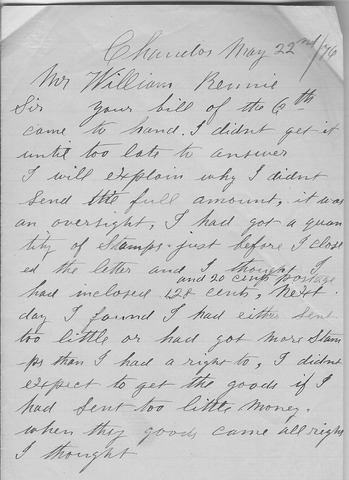 Chandos May 22nd/76
Mr William Rennie
Sir your bill of the 6th
came to hand. I didnt get it
until too late to answer
I will explain why I didnt
send the full amount, it was
an oversight, I had got a quan
tity of Stamps just before I clos
ed the letter and I thought I
and 20 cents postage
had inclosed 128 cents, Next
day I found I had either sent
too little or had got more Stam
ps than I had a right to, I didnt
expect to get the goods if I
had sent too little money.
when they goods came all right
I thought